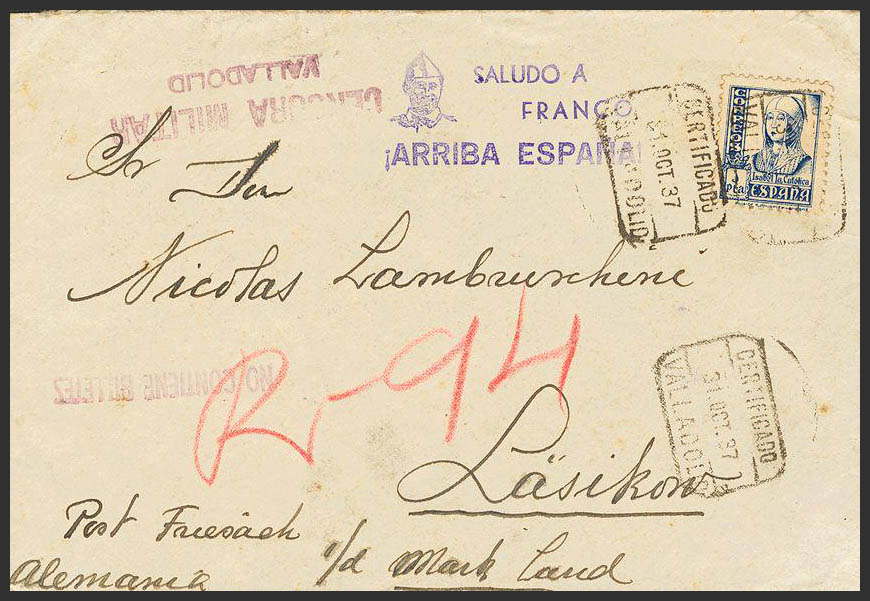 CENSURA MILITAR
VALLADOLID
SALUDO A
FRANCO
¡ARRIBA ESPAÑA!
CERTIFICADO
31.OCT.37
VALLADOLID
CORREOS
Isabel la Católica
1 Pta
ESPAÑA
Sr Don
Nicolas Lambruschene
NO CONTIENE BILLETEZ
R-94
CERTIFICADO
31.OCT.37
VALLADOLID
Läsikow
Post Freesach
i/d Mark Land
Alemania